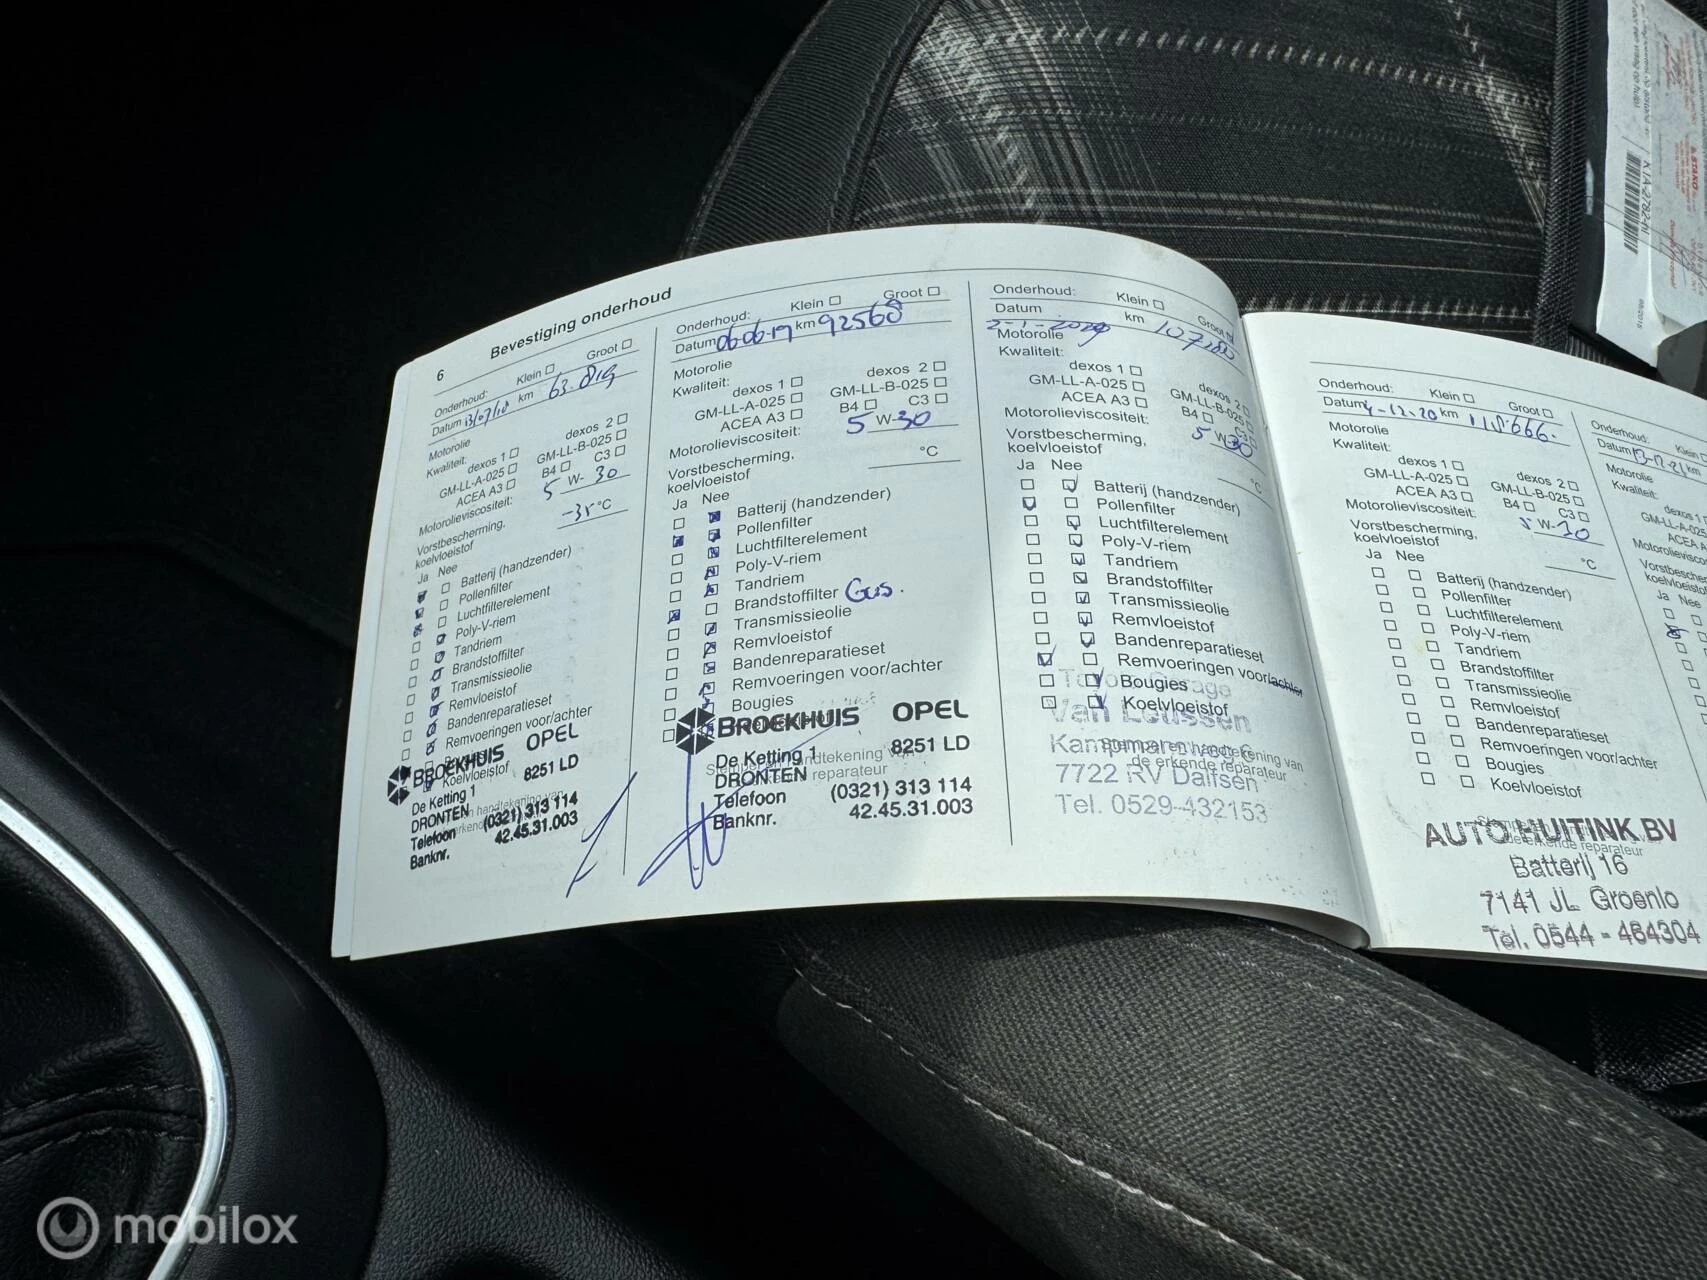 6 Bevestiging onderhoud
Onderhoud: Klein Groot
Datum 13/07/18 km 63.819
Motorolie
Kwaliteit: dexos 1 dexos 2
GM-LL-A-025 GM-LL-B-025
ACEA A3 B4 C3
Motorolieviscositeit: 5 W- 30
Vorstbescherming,
koelvloeistof -35 °C
Ja Nee
Batterij (handzender)
Pollenfilter
Luchtfilterelement
Poly-V-riem
Tandriem
Brandstoffilter
Transmissieolie
Remvloeistof
Bandenreparatieset
Remvoeringen voor/achter
Koelvloeistof
BROEKHUIS OPEL
De Ketting 1 8251 LD
DRONTEN
Telefoon (0321) 313 114
Banknr. 42.45.31.003
Onderhoud: Klein Groot
Datum 06-06-19 km 92568
Motorolie
Kwaliteit: dexos 1 dexos 2
GM-LL-A-025 GM-LL-B-025
ACEA A3 B4 C3
Motorolieviscositeit: 5 W-30
Vorstbescherming,
koelvloeistof °C
Ja Nee
Batterij (handzender)
Pollenfilter
Luchtfilterelement
Poly-V-riem
Tandriem
Brandstoffilter Gas.
Transmissieolie
Remvloeistof
Bandenreparatieset
Remvoeringen voor/achter
Bougies
BROEKHUIS OPEL
De Ketting 1 8251 LD
DRONTEN
Telefoon (0321) 313 114
Banknr. 42.45.31.003
Stempel en handtekening van
de erkende reparateur
Onderhoud: Klein Groot
Datum 2-1-2020 km
Motorolie
Kwaliteit: dexos 1 dexos 2
GM-LL-A-025 GM-LL-B-025
ACEA A3 B4 C3
Motorolieviscositeit: 5 W-30
Vorstbescherming,
koelvloeistof °C
Ja Nee
Batterij (handzender)
Pollenfilter
Luchtfilterelement
Poly-V-riem
Tandriem
Brandstoffilter
Transmissieolie
Remvloeistof
Bandenreparatieset
Remvoeringen voor/achter
Bougies
Koelvloeistof
Van Leussen
Stempel en handtekening van
de erkende reparateur
7722 RV Dalfsen
Tel. 0529-432153
Onderhoud: Klein Groot
Datum 4-12-20 km 118.666.
Motorolie
Kwaliteit:
dexos 1 dexos 2
GM-LL-A-025 GM-LL-B-025
ACEA A3 B4 C3
Motorolieviscositeit: 5 W-30
Vorstbescherming,
koelvloeistof °C
Ja Nee
Batterij (handzender)
Pollenfilter
Luchtfilterelement
Poly-V-riem
Tandriem
Brandstoffilter
Transmissieolie
Remvloeistof
Bandenreparatieset
Remvoeringen voor/achter
Bougies
Koelvloeistof
AUTO HUITINK BV
de erkende reparateur
Batterij 16
7141 JL Groenlo
Tel. 0544 - 464304
Onderhoud: Klein
Datum 13-12-21 km
Motorolie
Kwaliteit:
dexos 1
GM-LL-A-025
ACEA A3
Ja Nee
mobilox